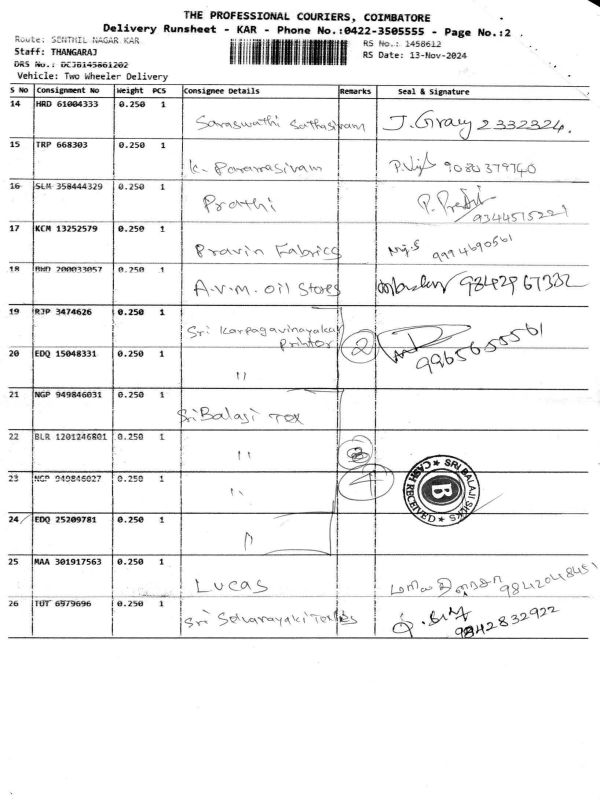 THE PROFESSIONAL COURIERS, COIMBATORE
Delivery Runsheet - KAR - Phone No.:0422-3505555 - Page No.:2
Route: SENTHIL NAGAR KAR
RS No.: 1458612
Staff: THANGARAJ
RS Date: 13-Nov-2024
DRS No.: DCJB145861202
Vehicle: Two Wheeler Delivery
S No Consignment No Weight PCS Consignee Details Remarks Seal & Signature
14 HRD 61004333 0.250 1 Saraswathi Sathasivam J. Gray 2332324.
15 TRP 668303 0.250 1 K. Paramasivam 9080379740
16 SLM 358444329 0.250 1 Prathi 9344515221
17 KCM 13252579 0.250 1 Pravin Fabrics 9994690561
18 BWD 200033057 0.250 1 A.V.M. Oil Stores 9842967332
19 RJP 3474626 0.250 1 Sri Karpagavinayakar Printer 2 9965655561
20 EDQ 15048331 0.250 1 "
21 NGP 949846031 0.250 1 Sri Balaji Tex
22 BLR 1201246801 0.250 1 "
23 NGP 949846027 0.250 1 " 4 SRI BALAJI SILKS ★ CASH RECEIVED ★ B
24 EDQ 25209781 0.250 1 "
25 MAA 301917563 0.250 1 Lucas 9842048451
26 TUT 6979696 0.250 1 Sri Selvanayaki Textiles 9842832922